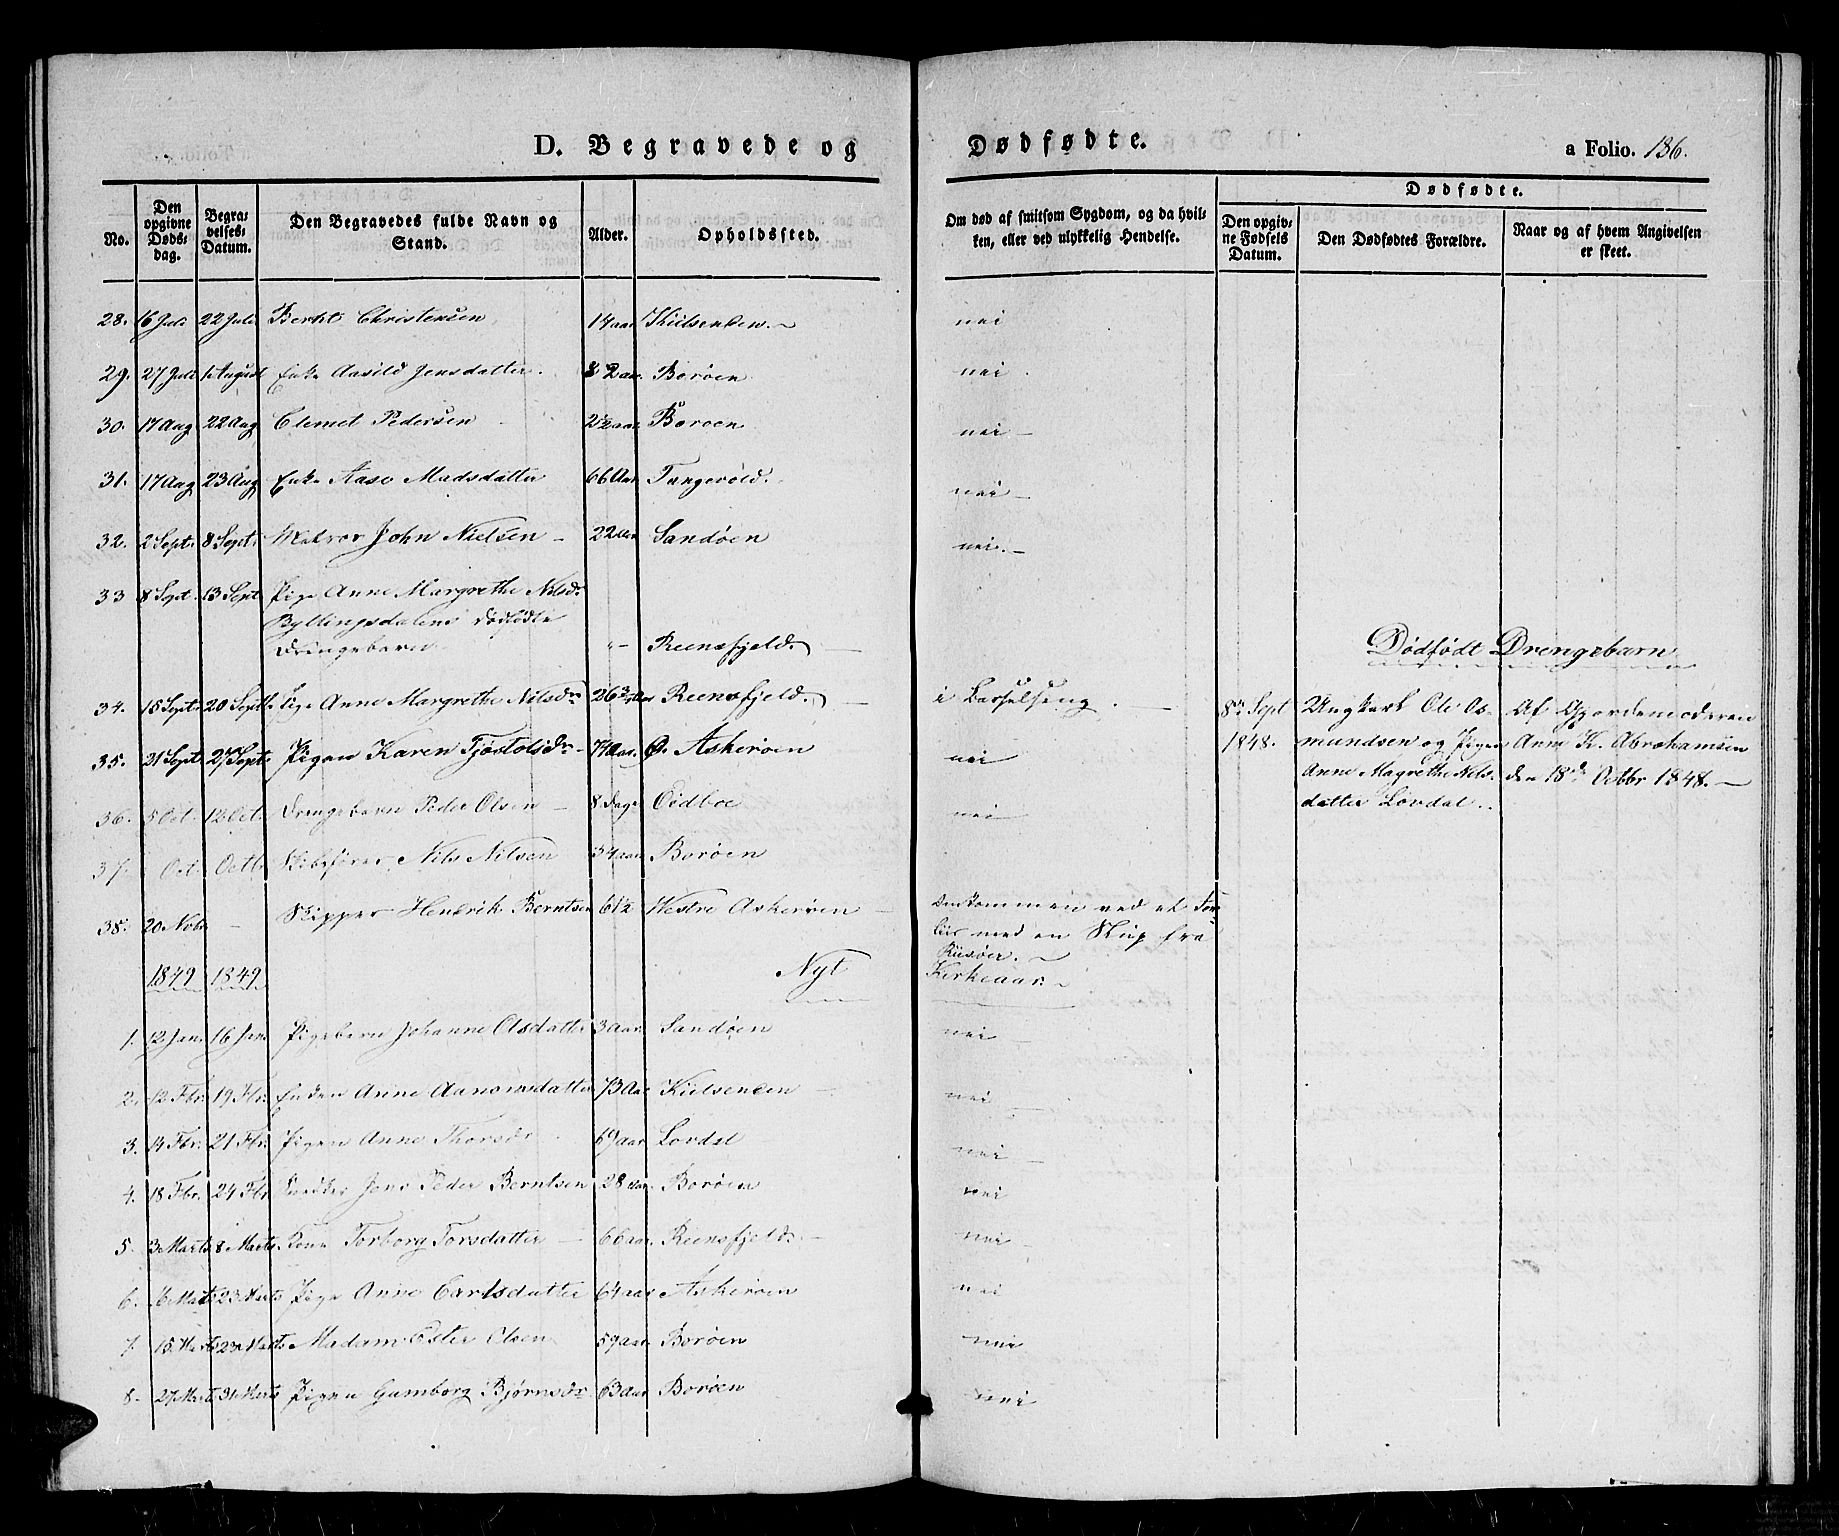 D. Begravede og Dødfødte.
a Folio. 136.
No. | Den opgivne Dødsdag. | Begravelses-Datum. | Den Begravedes fulde Navn og Stand. | Alder. | Opholdssted. | Om død af smitsom Sygdom, og da hvilken, eller ved ulykkelig Hendelse. | Dødfødte. | Den opgivne Fødsels Datum. | Den Dødfødtes Forældre. | Naar og af hvem Angivelsen er skeet.
28. 16 Juli 22 Juli Berht Christensen 14 aar Kiilsenden. nei
29. 27 Juli 1 August Enke Aasild Jensdatter. 82 aar. Borøen nei.
30. 17 Aug 22 Aug Clemet Pedersen 2½ aar Borøen nei
31. 17 Aug 23 Aug Enke Aase Madsdatter 66 Aar Tangevold. nei
32. 2 Sept. 8 Sept. Matros John Nielsen 22 Aar Sandøen nei.
33 8 Sept. 13 Sept Pige Anne Margrethe Nilsdr
Byllingsdalens dødfødte
Drengebarn " Reensfjeld.
Dødfødt Drengebarn
34. 15 Sept. 20 Septb. Pige Anne Margrethe Nilsdr 26 Reensfjeld. i Barselseng.
8de Sept Ungkarl Ole Os- Af Gjordemoderen
1848. mundsen og Pigen Anne K. Abrahamsen
Anne Magrethe Nils- den 18de Octbr 1848.
datter Lovdal.
35. 21 Sept 27 Sept. Pigen Karen Tjøstolsdr 74 Aar. Ø. Askerøen nei
36. 5 Oct. 12 Oct. Drengebarn Peder Olsen 8 Dage Oddboe nei
37. Oct. Octb. Skibsfører Nils Nilsen 34 aar Borøen
38. 20 Novbr Skipper Hendrik Berntsen 61½ Westre Askerøen Omkommen ved et For-
liis med en Slup fra
Riisøer.
1849 1849 Nyt Kirkeaar.
1. 12 Jan. 16 Jan Pigebarn Johanne Olsdatter 3 aar Sandøen nei
2. 12 Fbr. 19 Fbr. Enken Anne Aanonsdatter 73 Aar Kiilsenden nei
3. 14 Fbr. 21 Fbr. Pigen Anne Thorsdr 69 aar Lovdal nei
4. 18 Fbr. 24 Fbr. Snedker Jens Peder Berntsen 28 aar. Borøen nei
5. 3 Marts 8 Marts Kone Torborg Torsdatter 66 aar. Reensfjeld. nei
6. 6 Marts 23 Marts Pige Anne Carlsdatter 64 aar Askerøen nei
7. 15 Marts 23 Marts Madam Ester Olsen 59 aar Borøen nei
8. 27 Marts 31 Marts Pigen Gumborg Bjørnsdr 63 aar Borøen nei